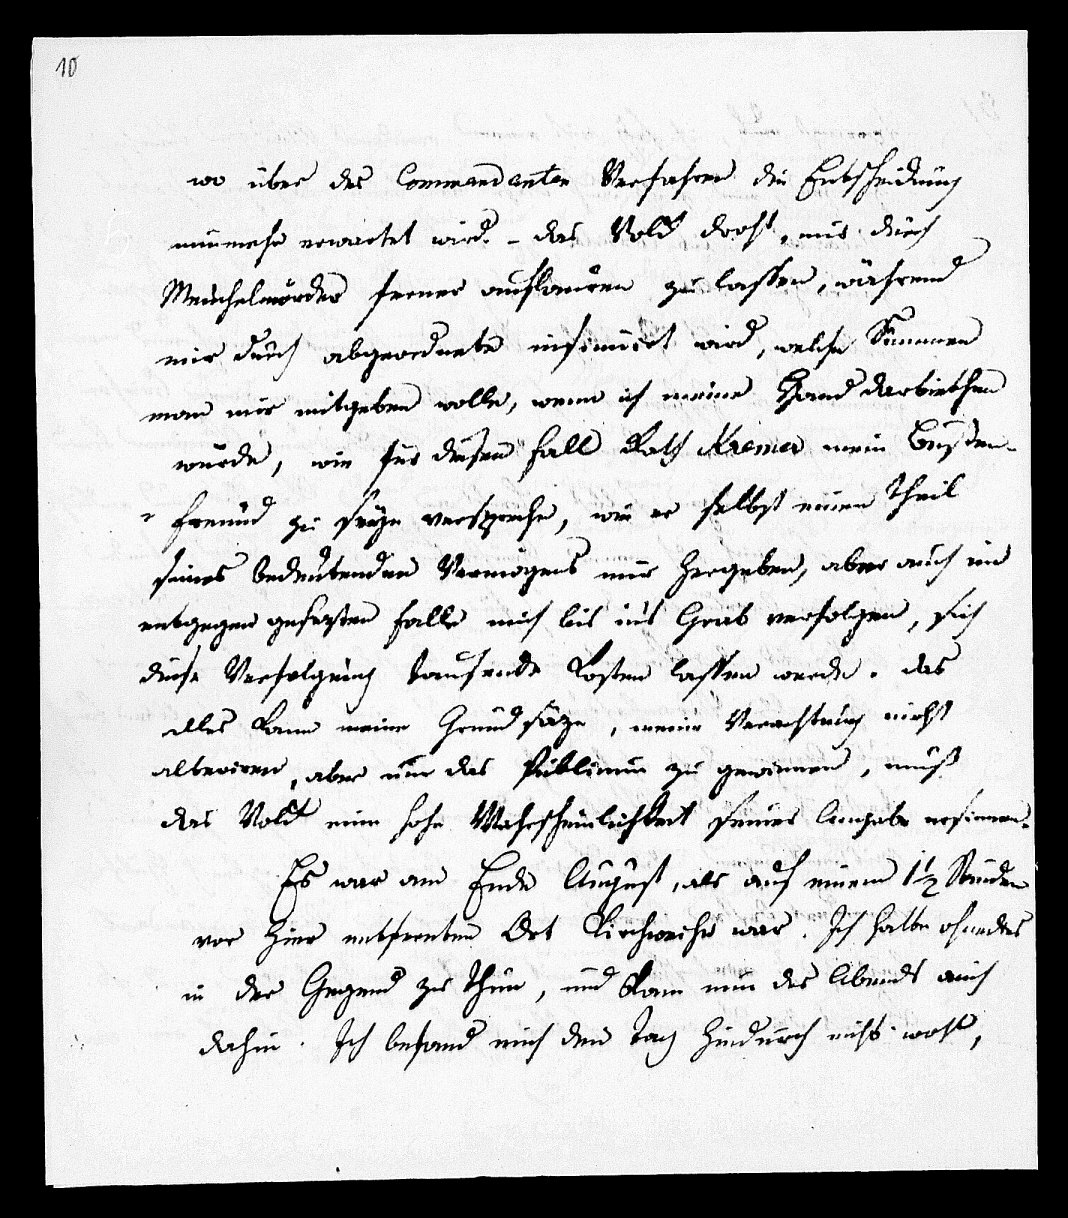 10
wo über des Commandanten Verfahren die Entscheidung
nunmehr erwartet wird. – das Volk droht, mir durch
Meuchelmörder ferner auflauren zu lassen, während
mir durch abgeordnete insinuirt wird, welche Summen
man mir mitgeben wolle, wenn ich meine Hand darbiethen
würde, wie für diesen Fall Rath Kremer mein Busen-
freund zu seyn verspreche, wie er selbst einen Theil
seines bedeutenden Vermögens mir hergeben, aber auch im
entgegen gesezten Falle mich bis in's Grab verfolgen, sich
diese Verfolgung tausende kosten lassen werde. das
alles kann meine Grundsäze, meine Verachtung nicht
alteriren, aber um das Publicum zu gewinnen, muß
das Volk eine hohe Wahrscheinlichkeit seiner Angabe ersinnen.
Es war am Ende August, als auf einem 1½ Stunden
von hier entfernten Ort Kirchweihe war. Ich hatte ohnedies
in der Gegend zu thun, und kam nun des Abends auch
dahin. Ich befand mich den Tag hindurch nicht wohl,